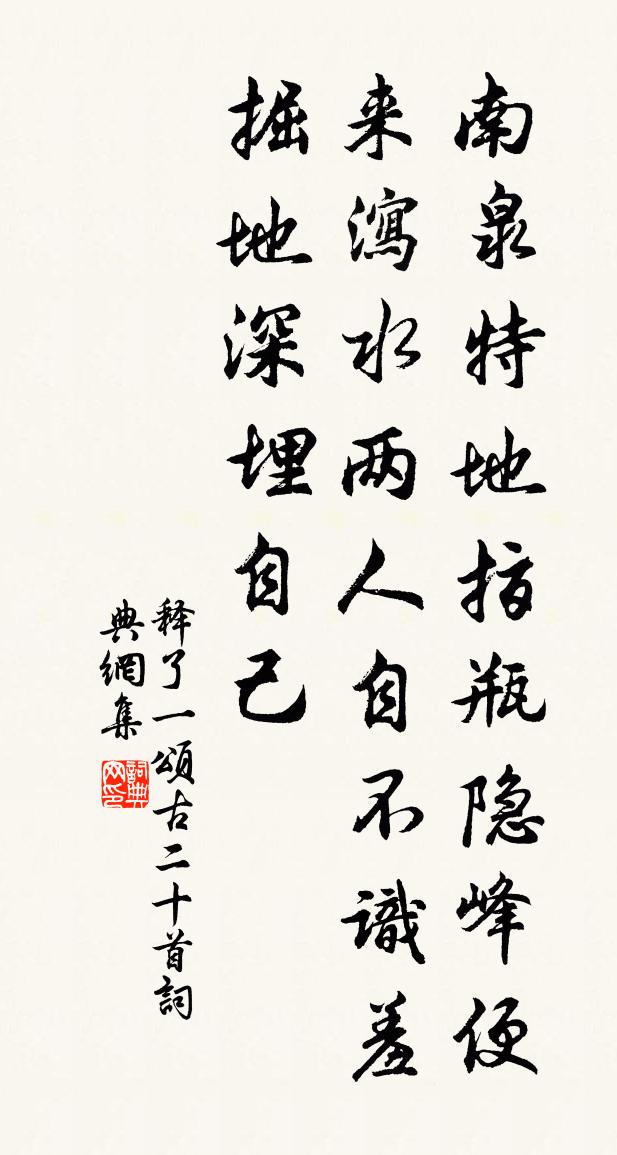 南泉特地指瓶隐峰便
来瀉水两人自不識羞
掘地深埋自己
释了一頌古二十首詞
典網集
詞典
网印